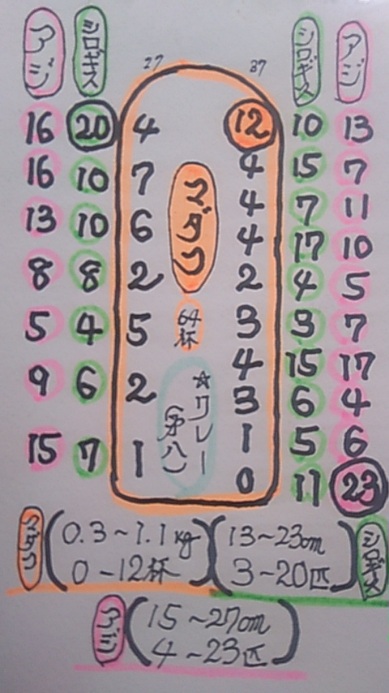 アジ シロギス 27 37 シロギス アジ
16 20 4
16 10 7
13 10 6
8 8 2
5 4 5
9 6 2
15 7 1
マダコ
64杯
☆リレー
(第八)
12 10 13
4 15 7
4 7 11
4 17 10
2 4 5
3 3 7
4 15 17
3 6 4
1 5 6
0 11 23
マダコ
(0.3~1.1kg
0~12杯)
(13~23cm
3~20匹)
シロギス
アジ
(15~27cm
4~23匹)